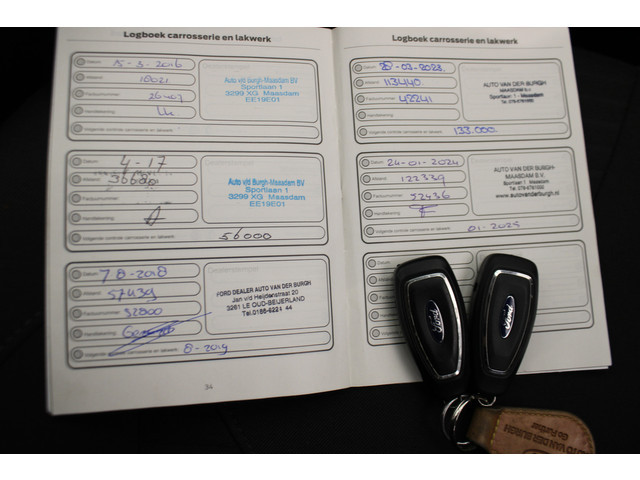 Logboek carrosserie en lakwerk
Datum: 15-3-2016
Afstand: 18021
Factuurnummer:
Handtekening:
Volgende controle carrosserie en lakwerk:
Auto v/d burgh-Maasdam BV
Sportlaan 1
3299 XG Maasdam
EE19E01
Datum: 4-17
Afstand: 36680
Factuurnummer:
Handtekening:
Volgende controle carrosserie en lakwerk: 56000
Auto v/d Burgh-Maasdam BV
Sportlaan 1
3299 XG Maasdam
EE19E01
Datum: 7 8-2018
Afstand: 57439
Factuurnummer: 32800
Handtekening:
Volgende controle carrosserie en lakwerk: 8-2019
FORD DEALER AUTO VAN DER BURGH
Jan v/d Heijdenstraat 20
3261 LE OUD-BEIJERLAND
34
Logboek carrosserie en lakwerk
Datum: 28-03-2023
Afstand: 113440
Factuurnummer: 42241
Handtekening:
Volgende controle carrosserie en lakwerk: 133.000
AUTO VAN DER BURGH
MAASDAM B.V.
Sportlaan 1 - Maasdam
Tel. 078-6761600
Datum: 24-01-2024
Afstand: 122339
Factuurnummer: 52436
Handtekening:
Volgende controle carrosserie en lakwerk: 01-2025
AUTO VAN DER BURGH-
MAASDAM B.V.
Sportlaan 1 - Maasdam
Tel. 078-6761600
www.autovanderburgh.nl
Ford
Ford
AUTO VAN DER BURGH